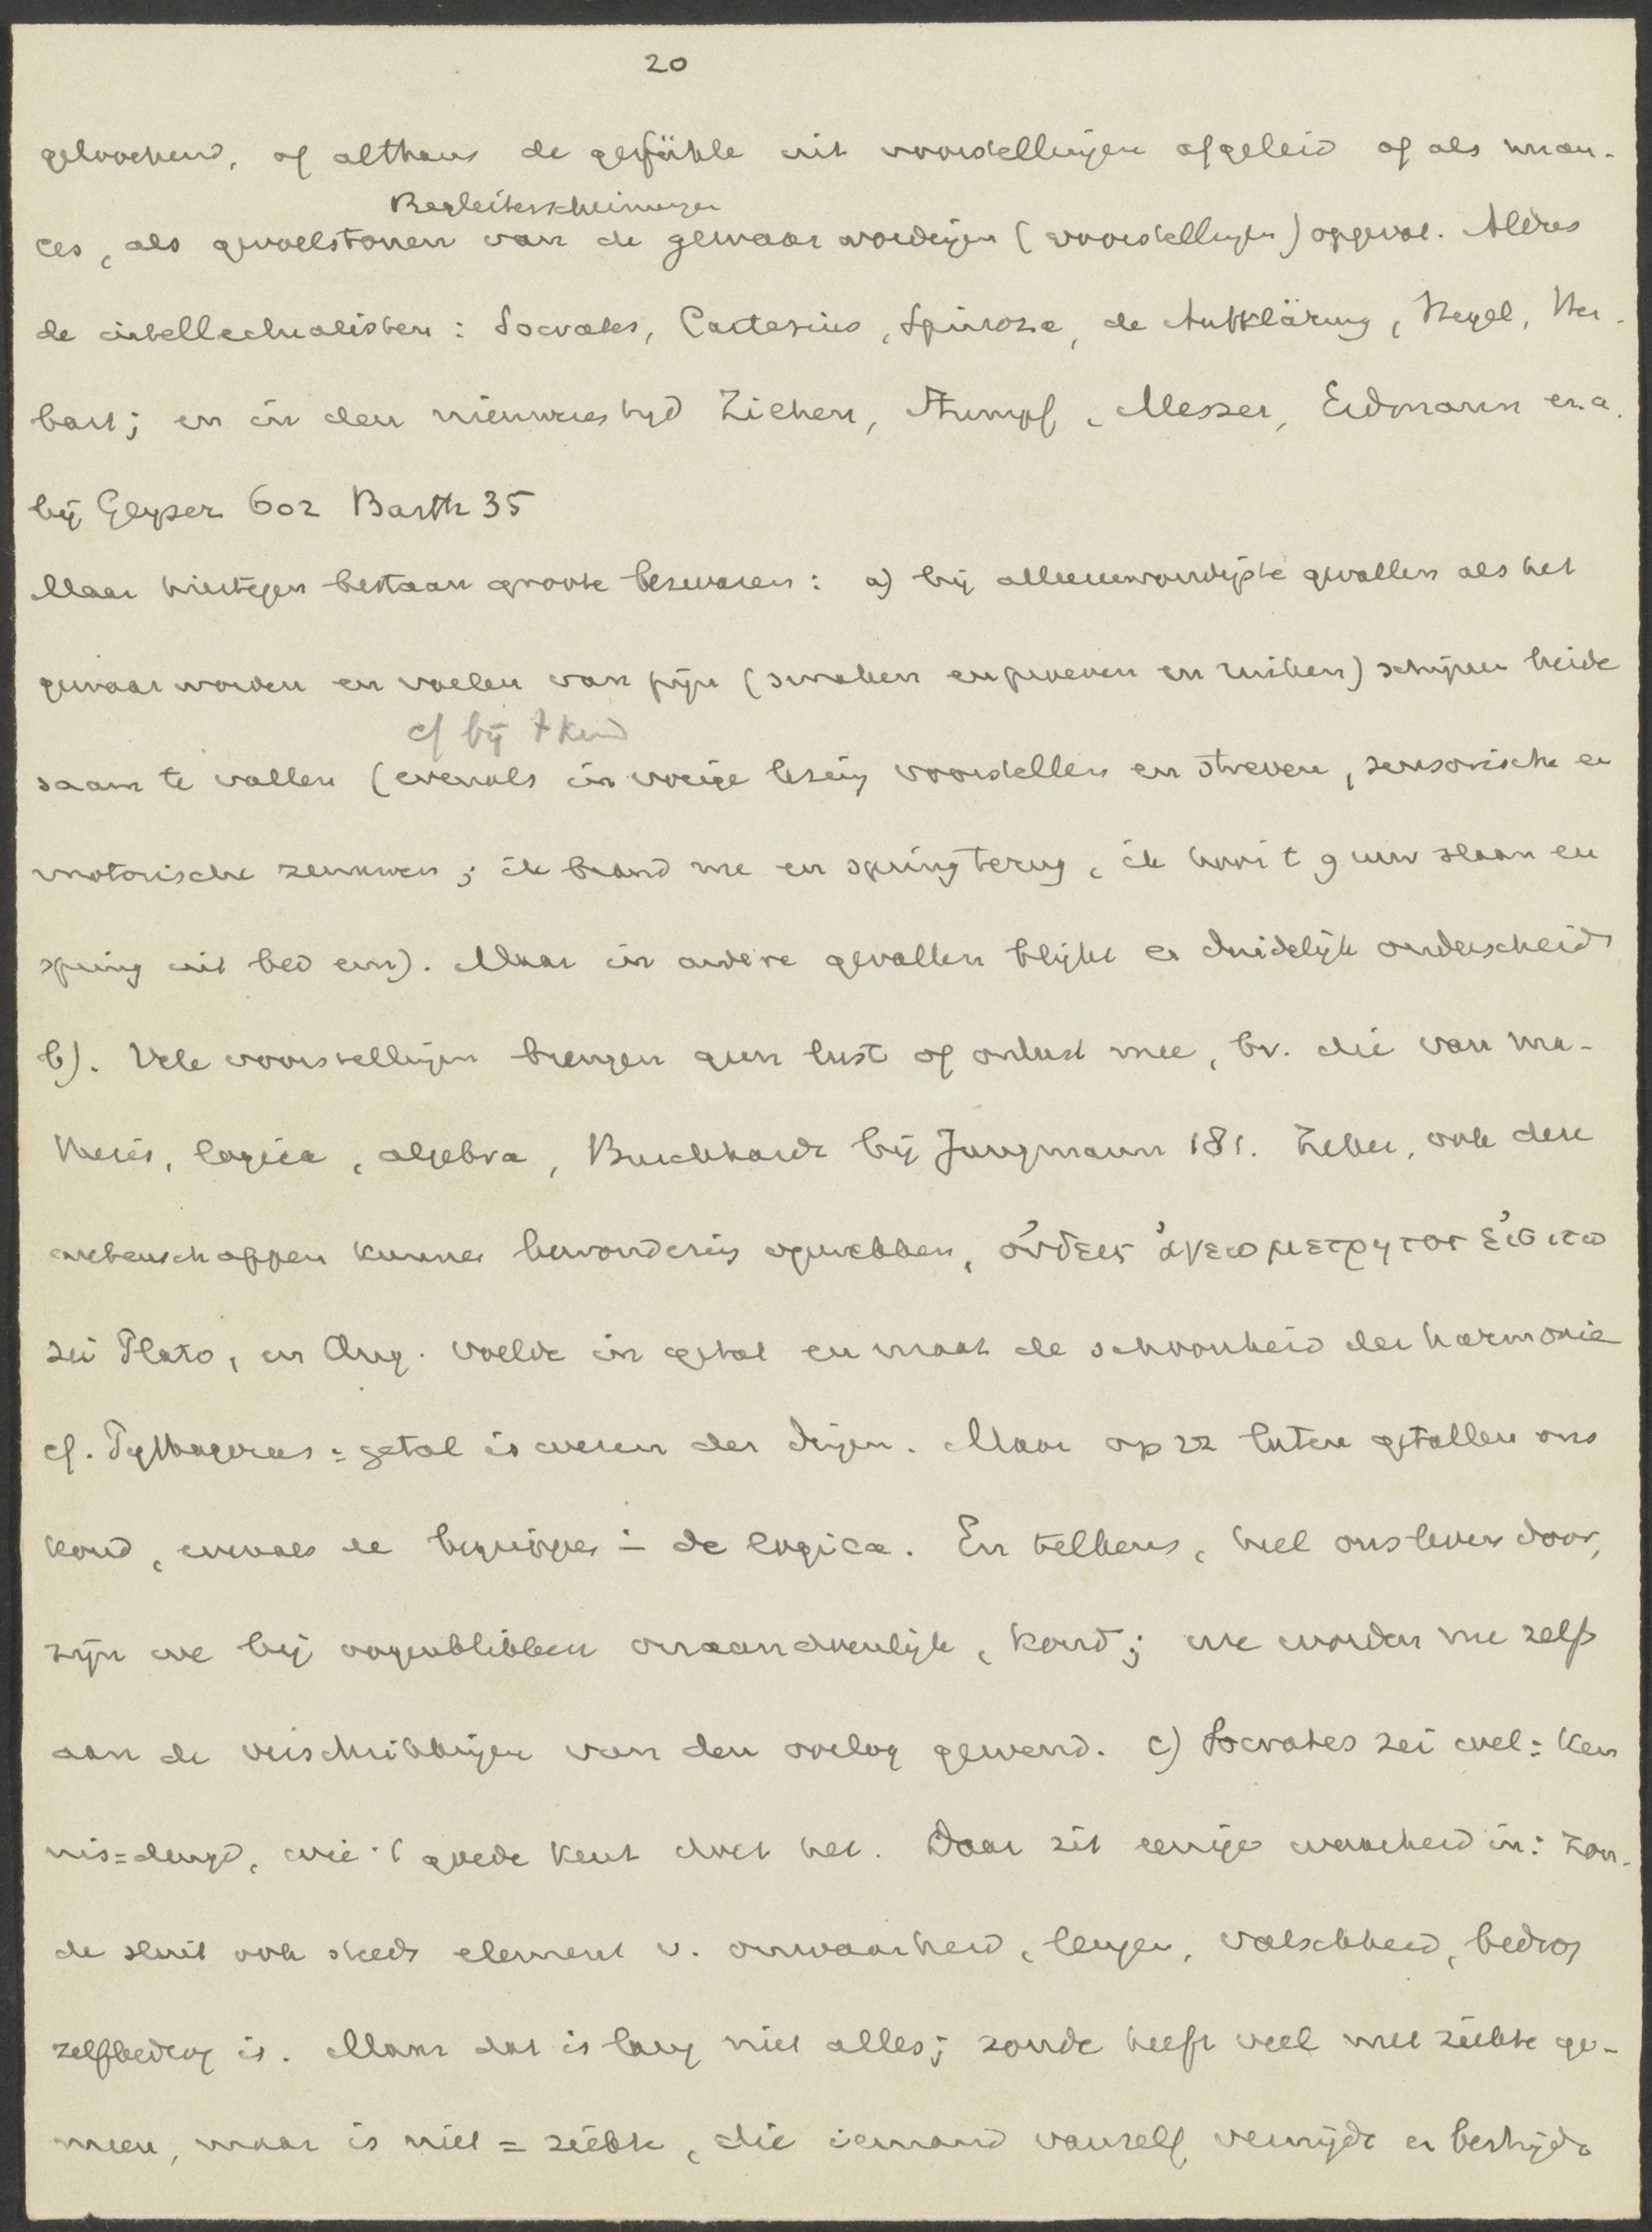 20
geloochend, of althans de gefühle uit voorstellingen afgeleid of als nuan-
Begleiterscheinungen
ces, als gevoelstonen van de gewaarwordingen (voorstellingen) opgevat. Aldus
de intellectualisten: Socrates, Cartesius, Spinoza, de Aufklärung, Hegel, Her-
bart; en in den nieuweren tyd Ziehen, Stumpf, Messer, Erdmann e.a.
bij Geyser 602 Barth 35
Maar hiertegen bestaan groote bezwaren: a) bij alleenvoudigste gevallen als het
gewaarworden en voelen van pijn (smaken en proeven en ruiken) schijnen beide
cf bij t kind
saam te vallen (evenals in vorige lezing voorstellen en streven, sensorische en
motorische zenuwen; ik brand me en spring terug, ik hoor t 9 uur slaan en
spring uit bed enz). Maar in andere gevallen blijkt er duidelijk onderscheid
b). Vele voorstellingen brengen geen lust of onlust mee, bv. die van ma-
thesis, logica, algebra, Burckhardt bij Jungmann 181. Zeker, ook deze
wetenschappen kunnen bewondering opwekken, οὐδεις ἀγεωμετρητος εἰσιτω
zei Plato, en Aug. voelde in getal en maat de schoonheid der harmonie
cf. Pythagoras: getal is wezen der dingen. Maar op zz laten getallen ons
koud, evenals de begrippen in de logica. En telkens, heel ons leven door,
zijn we bij oogenblikken onaandoenlijk, koud; we worden zelfs
aan de verschrikkingen van den oorlog gewend. c) Socrates zei wel: Ken
nis=deugd, wie 't goede kent doet het. Daar zit eenige waarheid in: zon-
de sluit ook steeds element v. onwaarheid, leugen, valschheid, bedrog
zelfbedrog in. Maar dat is lang niet alles; zonde heeft veel met ziekte ge-
meen, maar is niet = ziekte, die iemand vanzelf vermijdt en bestrijdt